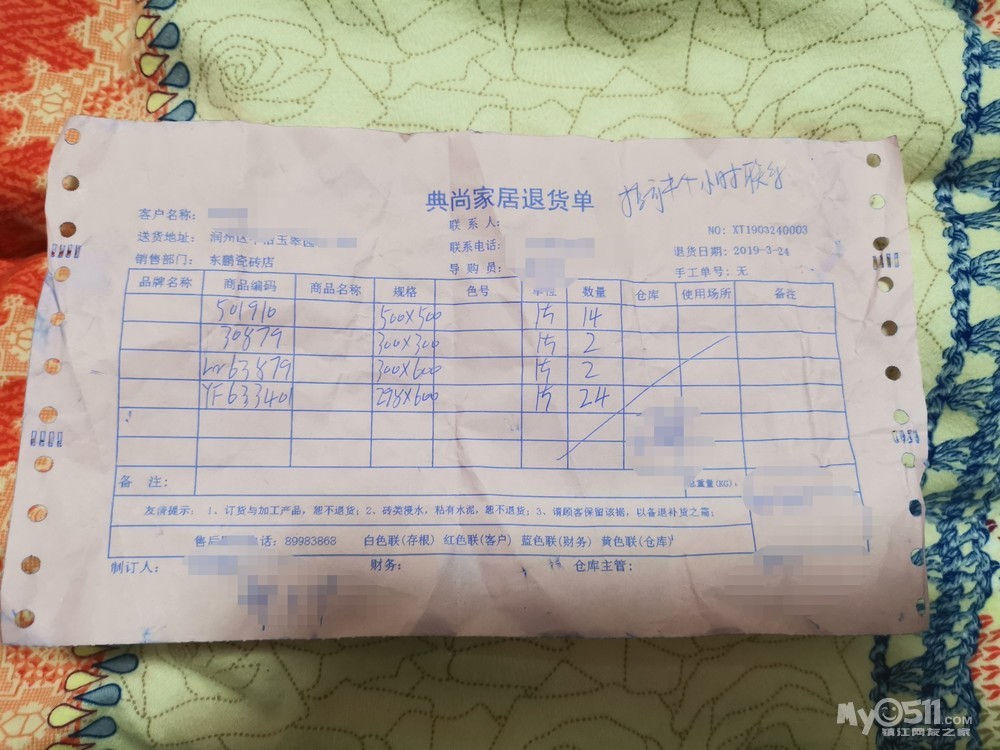 典尚家居退货单
小时联系
客户名称:
联 系 人:
NO: XT1903240003
送货地址: 润州区
联系电话:
退货日期: 2019-3-24
销售部门: 东鹏瓷砖店
导 购 员:
手工单号: 无
品牌名称 商品编码 商品名称 规格 色号 单位 数量 仓库 使用场所 备注
501910 500×500 片 14
30879 300×300 片 2
63879 300×600 片 2
YF633401 298×600 片 24
备 注: 总重量(KG):
友情提示: 1、订货与加工产品,恕不退货; 2、砖类浸水,粘有水泥,恕不退货; 3、请顾客保留该据,以备退补货之需;
售后 电话: 89983868 白色联(存根) 红色联(客户) 蓝色联(财务) 黄色联(仓库)
制订人: 财务: 仓库主管:
My0511.COM
镇江网友之家